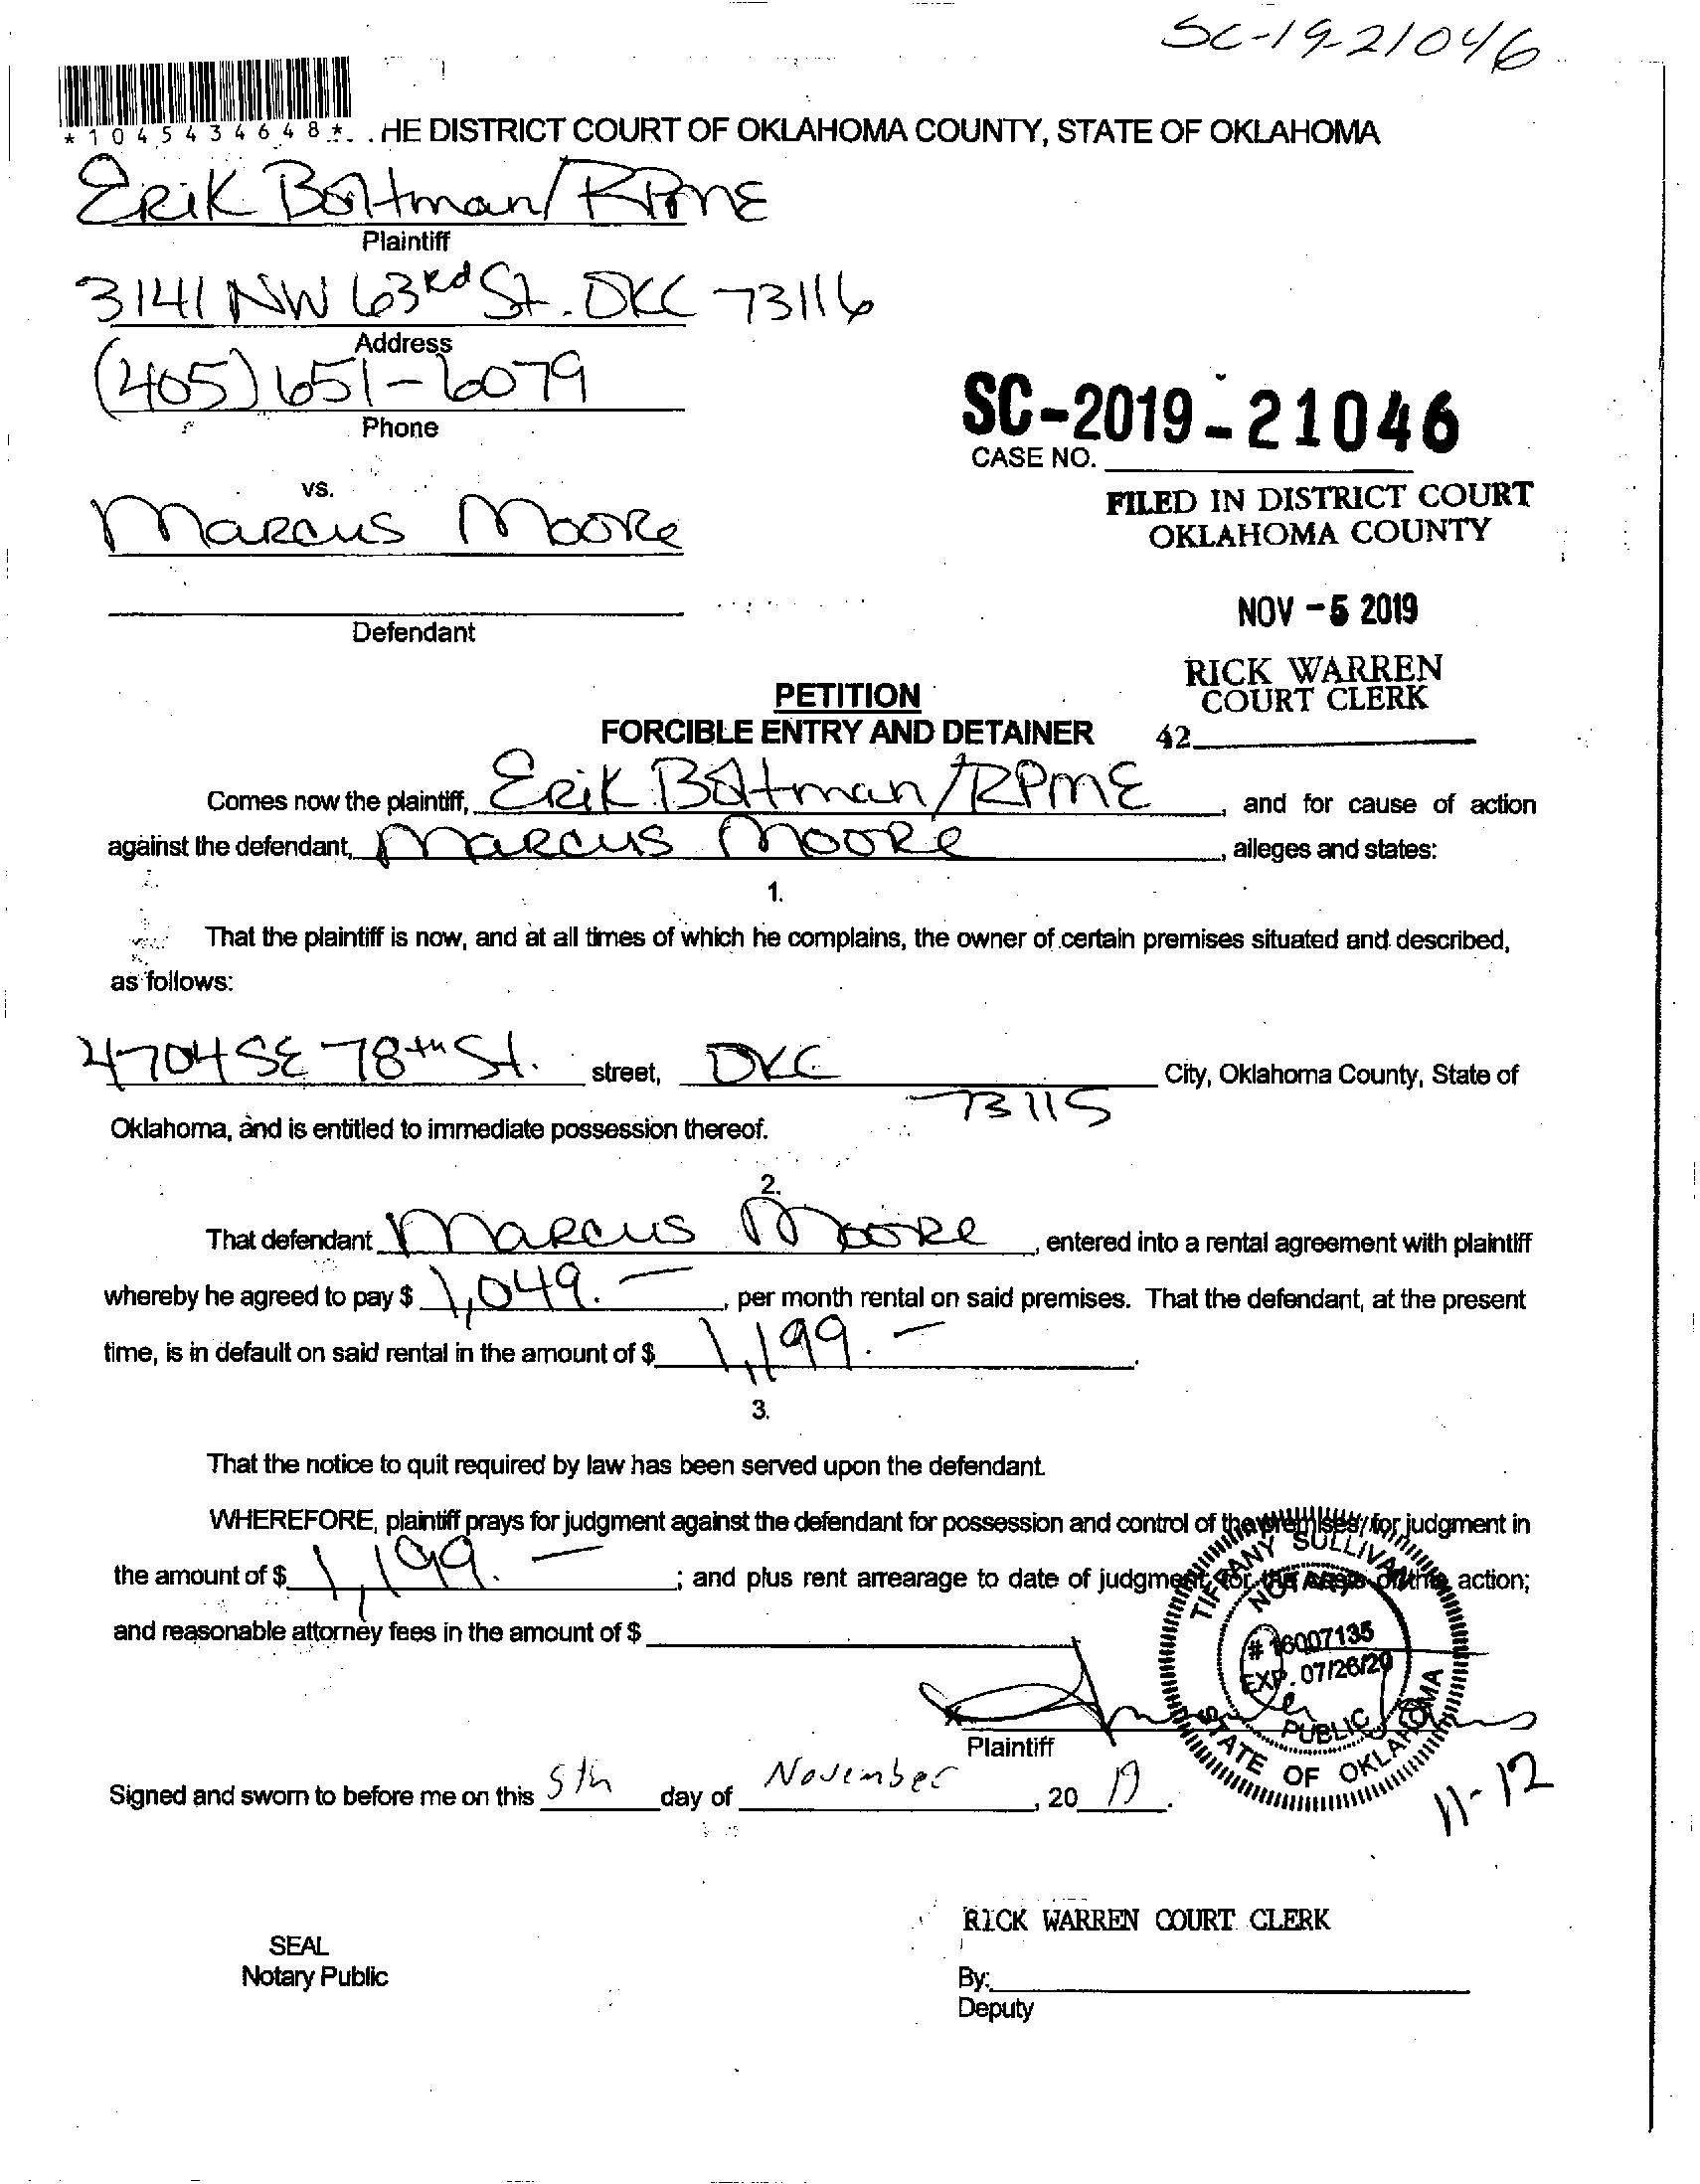 SC-19-21046
*1045434648*
HE DISTRICT COURT OF OKLAHOMA COUNTY, STATE OF OKLAHOMA
Erik Boltman/RPME
Plaintiff
3141 NW 63rd St. OKC 73116
Address
(405) 651-6079
Phone
SC-2019-21046
CASE NO.
vs.
FILED IN DISTRICT COURT
OKLAHOMA COUNTY
Marcus Moore
NOV -5 2019
Defendant
RICK WARREN
COURT CLERK
42
PETITION
FORCIBLE ENTRY AND DETAINER
Comes now the plaintiff, Erik Boltman/RPME, and for cause of action
against the defendant, Marcus Moore, alleges and states:
1.
That the plaintiff is now, and at all times of which he complains, the owner of certain premises situated and described,
as follows:
4704 SE 78th St. street, OKC City, Oklahoma County, State of
73115
Oklahoma, and is entitled to immediate possession thereof.
2.
That defendant Marcus Moore, entered into a rental agreement with plaintiff
whereby he agreed to pay $ 1,049.—, per month rental on said premises. That the defendant, at the present
time, is in default on said rental in the amount of $ 1,199.—.
3.
That the notice to quit required by law has been served upon the defendant.
WHEREFORE, plaintiff prays for judgment against the defendant for possession and control of the premises; for judgment in
the amount of $ 1,199.—; and plus rent arrearage to date of judgment; for the costs of this action;
and reasonable attorney fees in the amount of $
TIFFANY SULLIVAN
NOTARY
# 16007135
EXP. 07/26/20
PUBLIC
STATE OF OKLAHOMA
Plaintiff
Signed and sworn to before me on this 5th day of November, 2019.
11-12
RICK WARREN COURT CLERK
SEAL
Notary Public
By:
Deputy